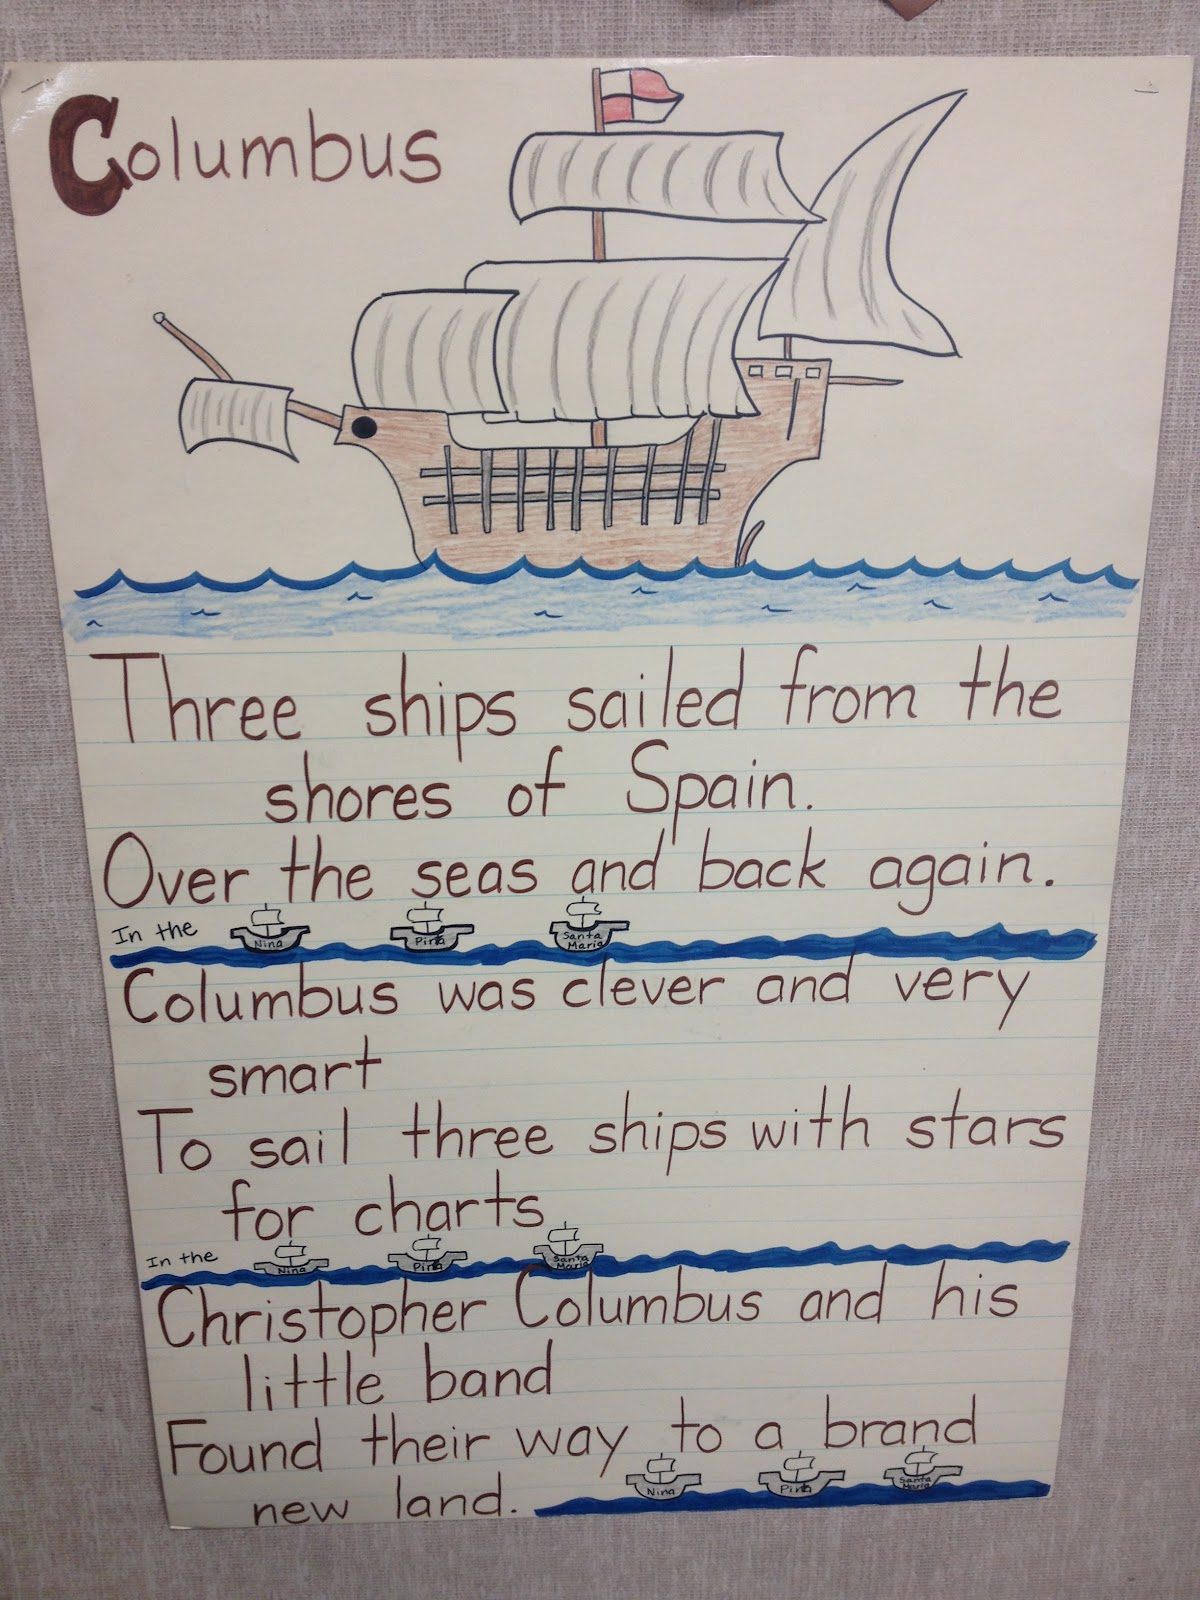 Columbus
Three ships sailed from the
shores of Spain.
Over the seas and back again.
In the Nina Pinta Santa Maria
Columbus was clever and very
smart
To sail three ships with stars
for charts
In the Nina Pinta Santa Maria
Christopher Columbus and his
little band
Found their way to a brand
new land.
Nina Pinta Santa Maria